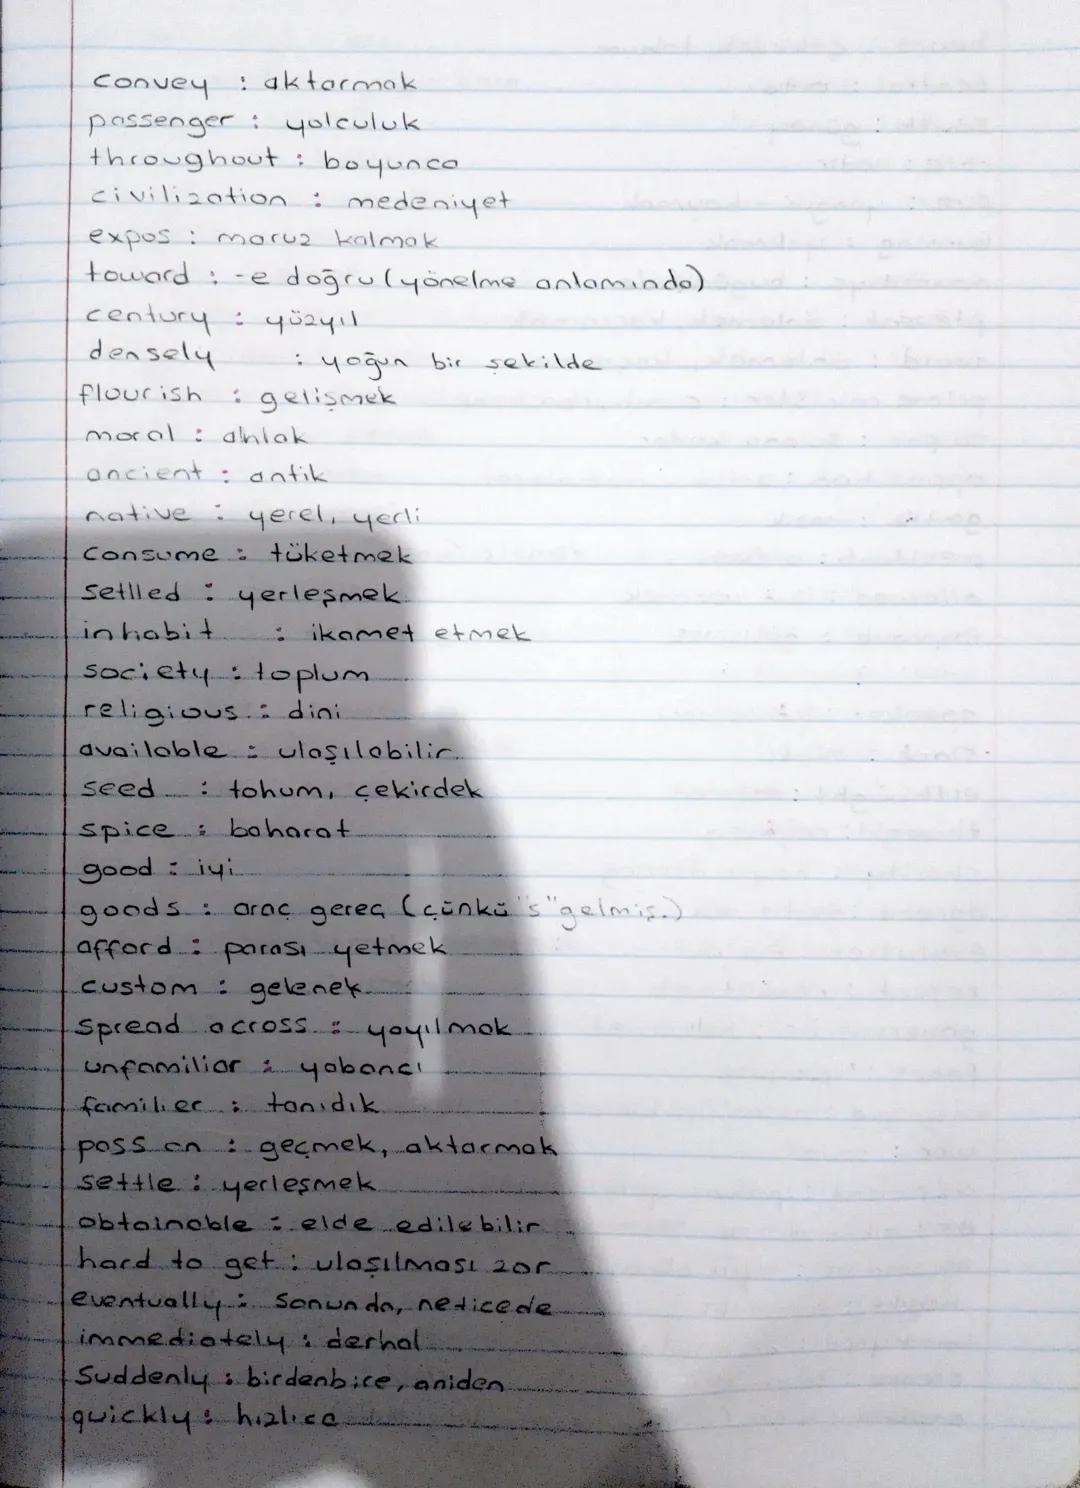 convey : aktarmak
passenger : yolculuk
throughout : boyunca
civilization : medeniyet
expos : maruz kalmak
toward : -e doğru (yönelme anlamında)
century : yüzyıl
densely : yoğun bir şekilde
flourish : gelişmek
moral : ahlak
ancient : antik
native : yerel, yerli
consume : tüketmek
setlled : yerleşmek
inhabit : ikamet etmek
society : toplum
religious : dini
available : ulaşılabilir
seed : tohum, çekirdek
spice : baharat
good : iyi
goods : araç gereç (çünkü "s" gelmiş.)
afford : parası yetmek
custom : gelenek
spread across : yayılmak
unfamiliar : yabancı
familier : tanıdık
pass on : geçmek, aktarmak
settle : yerleşmek
obtainable : elde edilebilir
hard to get : ulaşılması zor
eventually : Sonunda, neticede
immediately : derhal
Suddenly : birdenbire, aniden
quickly : hızlıca